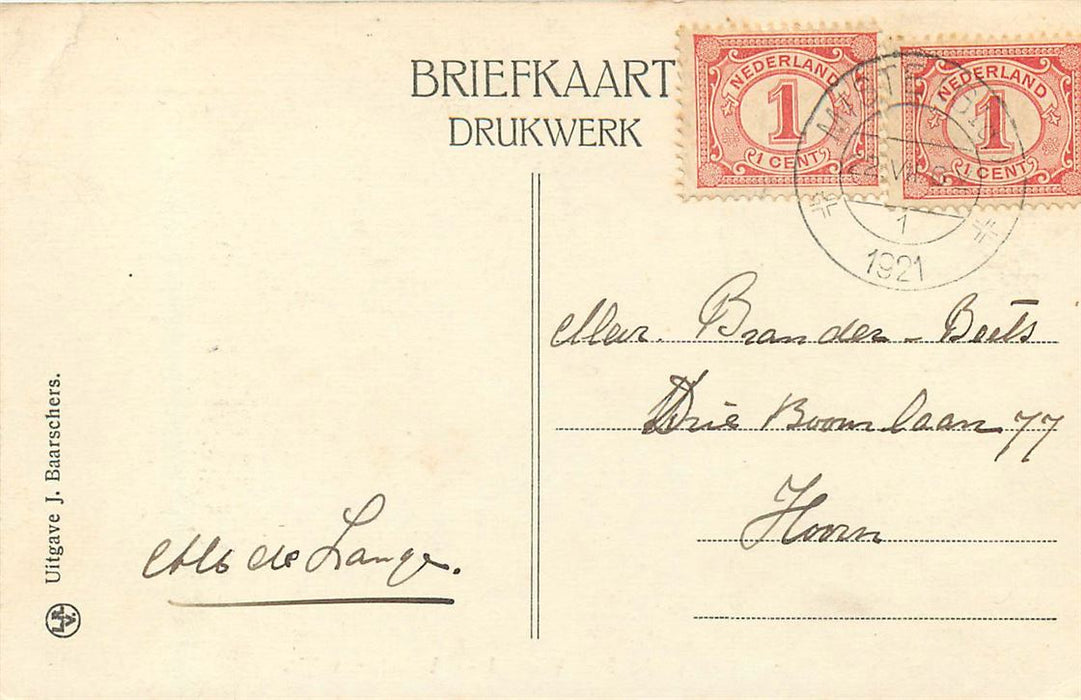 BRIEFKAART
DRUKWERK
NEDERLAND
1
1 CENT
NEDERLAND
1
1 CENT
22 VII
1
1921
Brander - Beets
Drie Boomlaan 77
Hoorn
de Lange.
Uitgave J. Baarschers.
L.R.V.